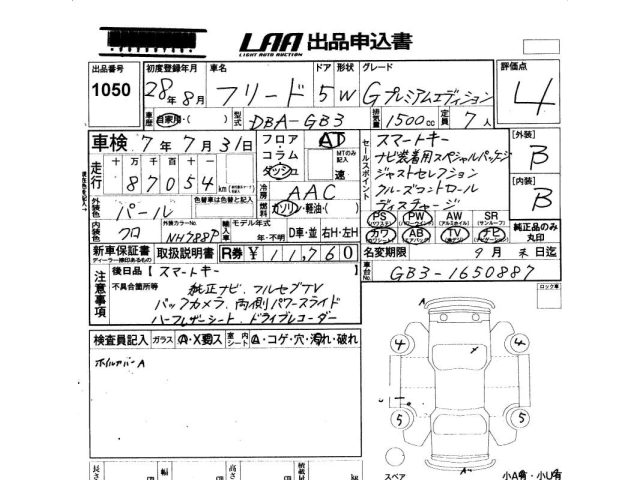 LAA 出品申込書
LIGHT AUTO AUCTION
出品番号 初度登録年月 車名 ドア 形状 グレード 評価点
1050 28年8月 フリード 5 W Gプレミアムエディション 4
車歴 自家用・( ) 型式 DBA-GB3 排気量 1500cc 定員 7人
車検 7年7月31日 フロア コラム ダッシュ AT MTのみ記入 速
走行 十万千百十 87054 km
冷房 AAC
外装色 パール 色替車は色替と記入 燃料 ガソリン・軽油・( )
内装色 クロ 外装カラーNo. NH788P 輸入車 モデル年式 年・不明 D車・並 右H・左H
セールスポイント
スマートキー
ナビ装着用スペシャルパッケージ
ジャストセレクション
クルーズコントロール
ディスチャージ
[外装] B
[内装] B
PS PW AW SR
カワ AB TV ナビ
純正品のみ丸印
新車保証書 取扱説明書 R券 ¥11,760
ディーラー捺印あるもの
名変期限 9月末日迄
車台No. GB3-1650887
注意事項
後日品 [ スマートキー ]
不具合箇所等 純正ナビ、フルセグTV
バックカメラ、両側パワースライド
ハーフレザーシート、ドライブレコーダー
ロック車
検査員記入 ガラス A・X・要ス 室内シート A・コゲ・穴・汚れ・破れ
ホイルカバーA
A
4 4
5 5
A
スペア
小A有・小U有
長さ 幅 高さ